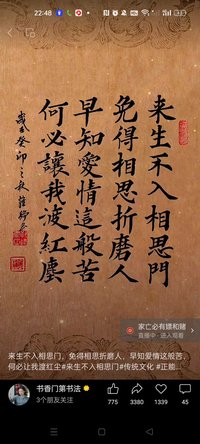 22:48
来生不入相思門
免得相思折磨人
早知愛情這般苦
何必讓我渡紅塵
癸卯之秋
家亡必有嫖和赌
直播中 · 进入观看
来生不入相思门，免得相思折磨人，早知爱情这般苦，
何必让我渡红尘#来生不入相思门#传统文化 #正能...
书香门第书法
3个朋友关注
775 3380 1339 45